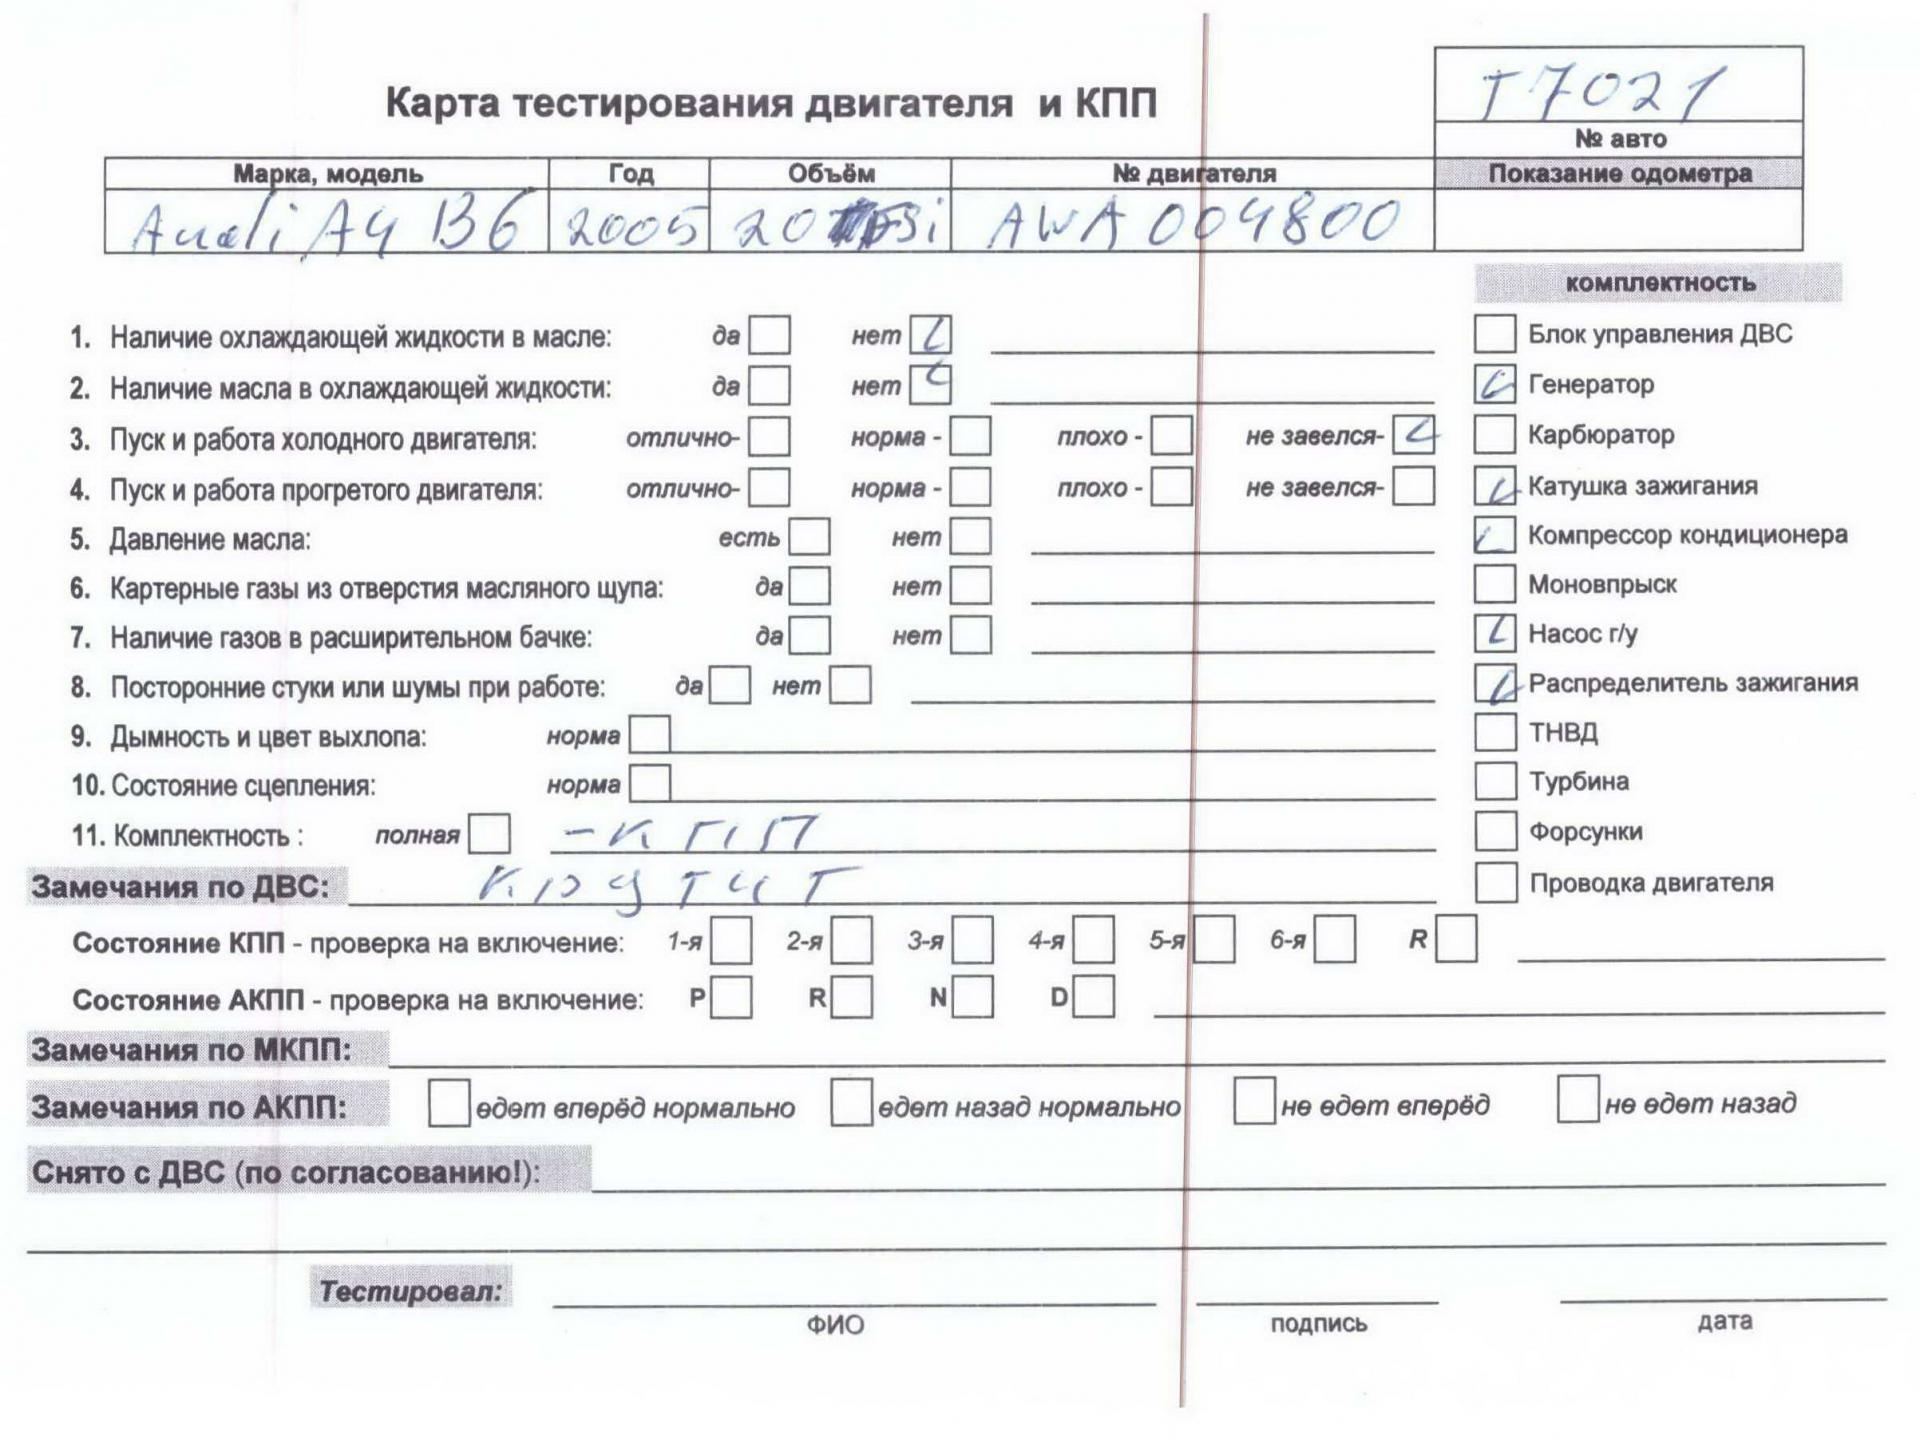 Т7021
Карта тестирования двигателя и КПП
№ авто
Марка, модель Год Объём № двигателя Показание одометра
Audi A4 B6 2005 20 FSi AWA 004800
комплектность
1. Наличие охлаждающей жидкости в масле: да нет Блок управления ДВС
2. Наличие масла в охлаждающей жидкости: да нет Генератор
3. Пуск и работа холодного двигателя: отлично- норма - плохо - не завелся- Карбюратор
4. Пуск и работа прогретого двигателя: отлично- норма - плохо - не завелся- Катушка зажигания
5. Давление масла: есть нет Компрессор кондиционера
6. Картерные газы из отверстия масляного щупа: да нет Моновпрыск
7. Наличие газов в расширительном бачке: да нет Насос г/у
8. Посторонние стуки или шумы при работе: да нет Распределитель зажигания
9. Дымность и цвет выхлопа: норма ТНВД
10. Состояние сцепления: норма Турбина
11. Комплектность : полная -КПП Форсунки
Замечания по ДВС: крутит Проводка двигателя
Состояние КПП - проверка на включение: 1-я 2-я 3-я 4-я 5-я 6-я R
Состояние АКПП - проверка на включение: P R N D
Замечания по МКПП:
Замечания по АКПП: едет вперёд нормально едет назад нормально не едет вперёд не едет назад
Снято с ДВС (по согласованию!):
Тестировал:
ФИО подпись дата